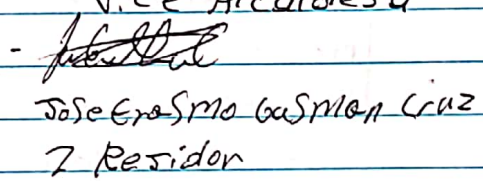 Vice Alcaldesa
-
Jose Erasmo Gusman Cruz
2 Residor